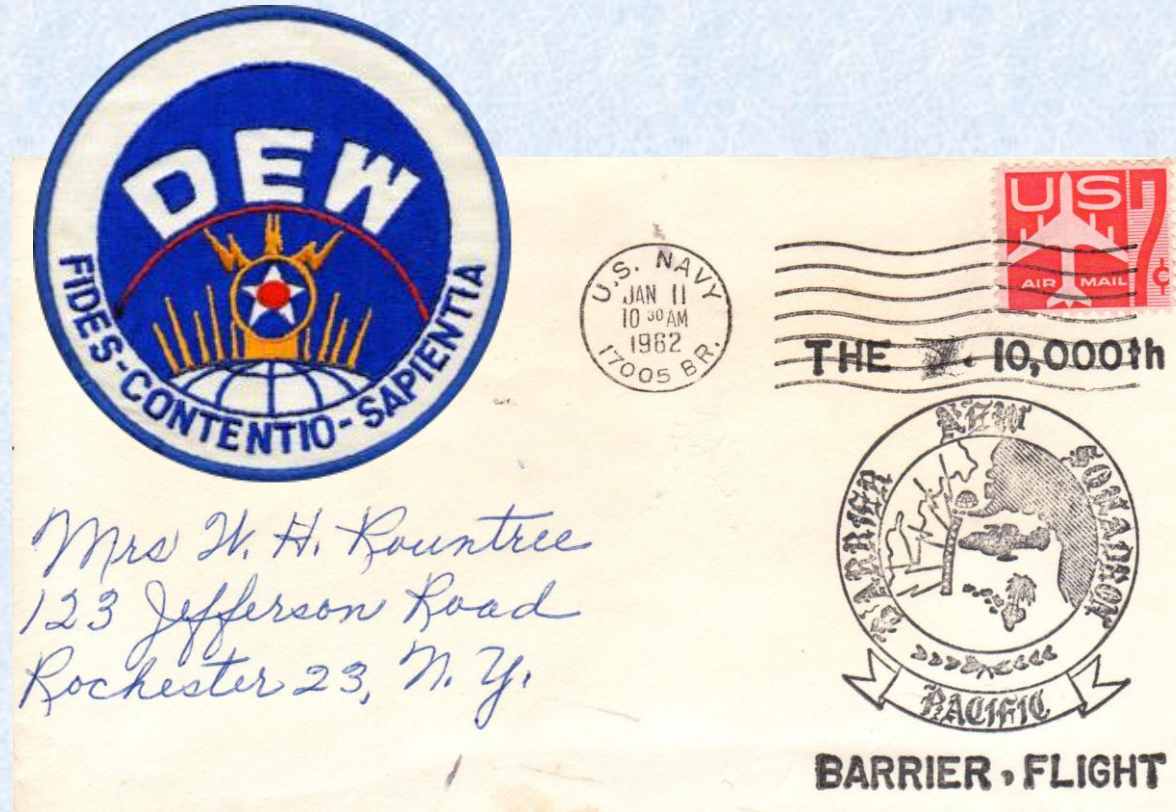 DEW
FIDES-CONTENTIO-SAPIENTIA
U.S. NAVY
JAN 11
10 30 AM
1962
17005 BR.
US
7¢
AIR MAIL
THE 10,000th
BARRIER AEW SQUADRON
PACIFIC
BARRIER, FLIGHT
Mrs W. H. Rountree
123 Jefferson Road
Rochester 23, N. Y.